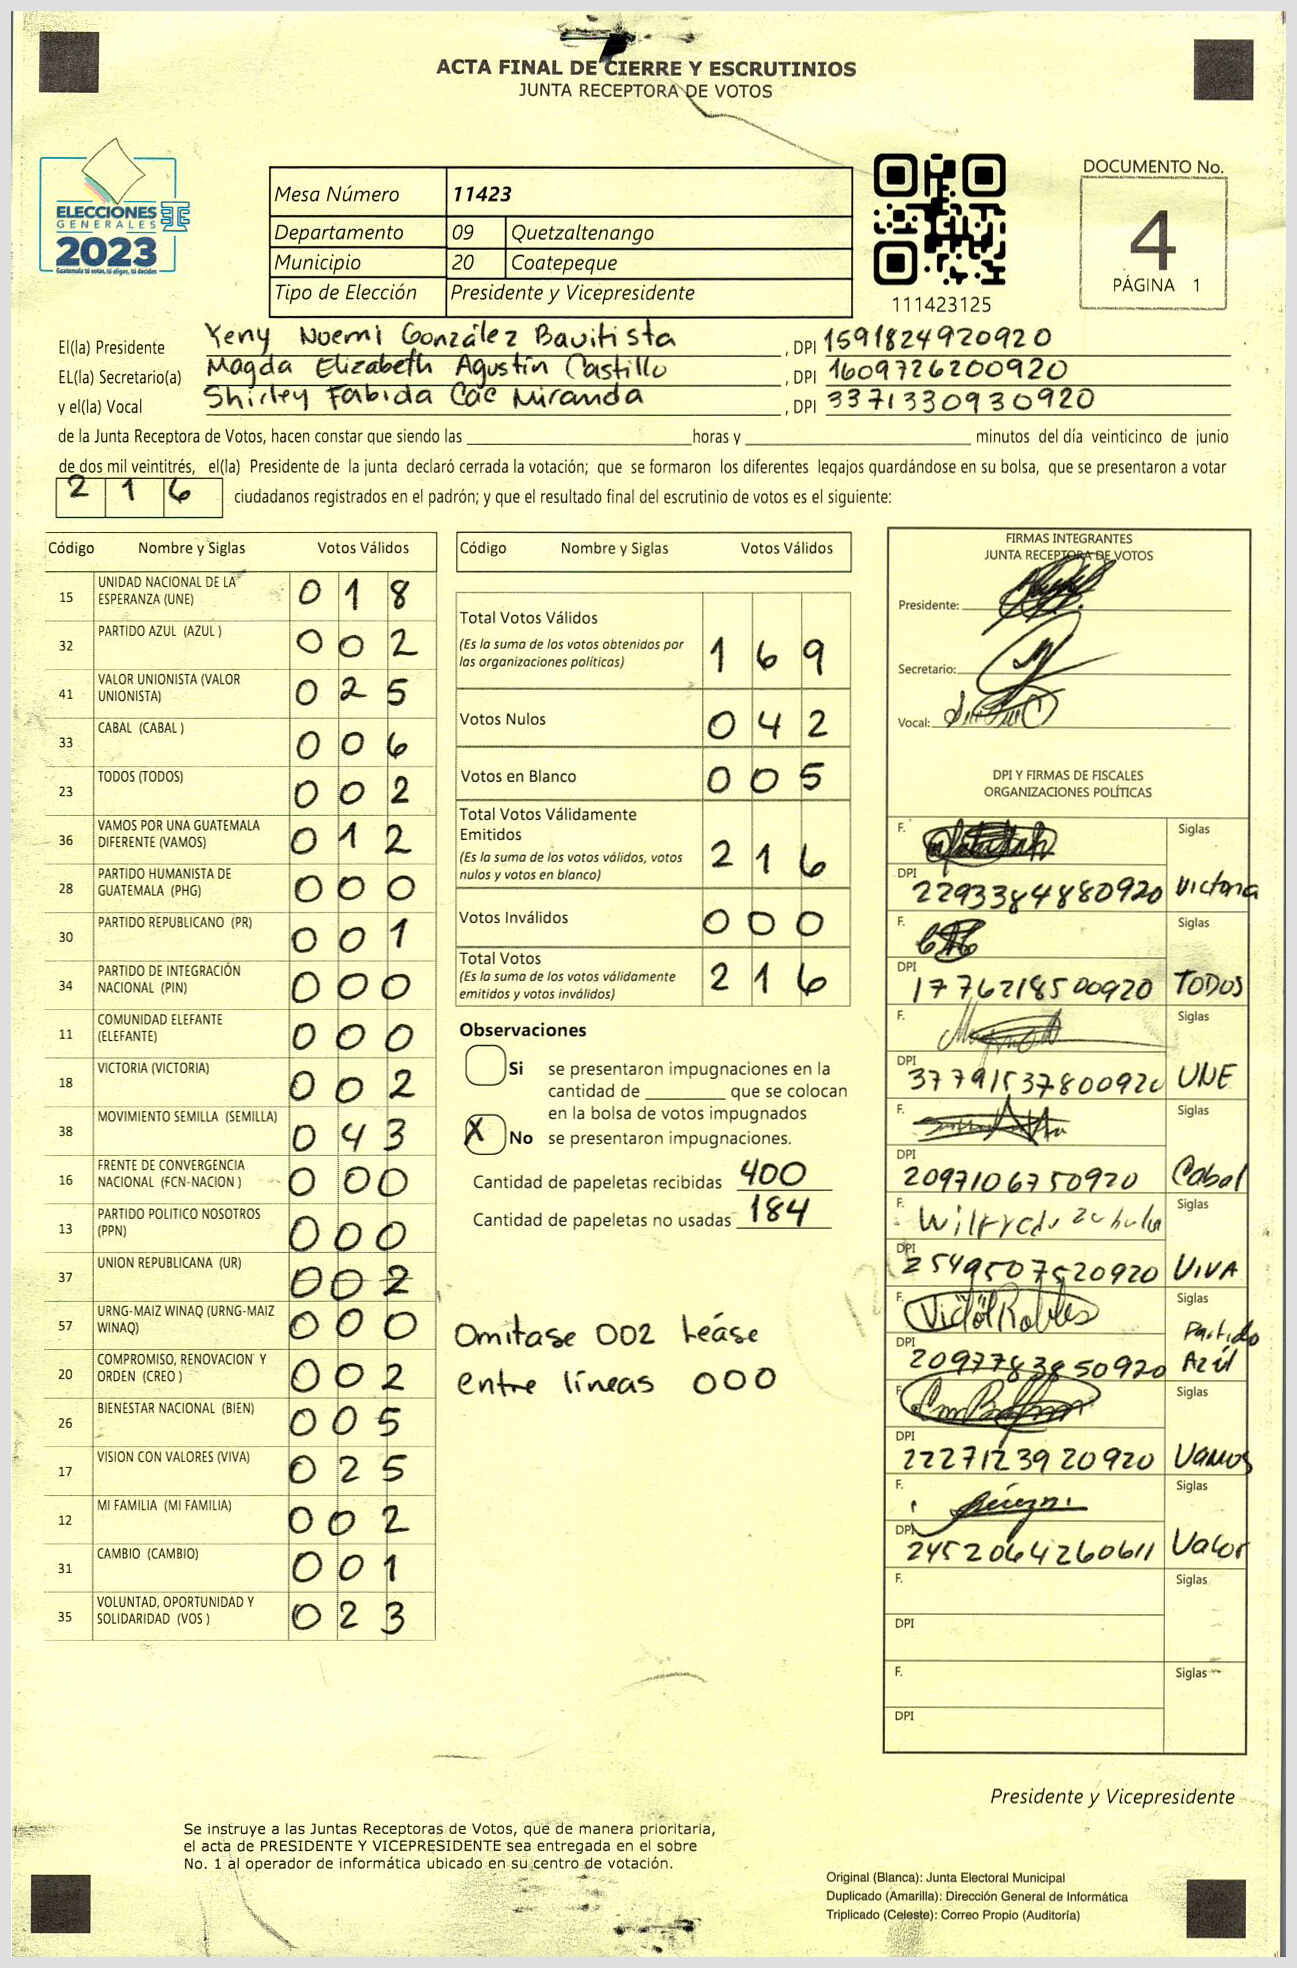 ACTA FINAL DE CIERRE Y ESCRUTINIOS
JUNTA RECEPTORA DE VOTOS
ELECCIONES
GENERALES
2023
Guatemala tú votas, tú eliges, tú decides
Mesa Número 11423
Departamento 09 Quetzaltenango
Municipio 20 Coatepeque
Tipo de Elección Presidente y Vicepresidente
111423125
DOCUMENTO No.
4
PÁGINA 1
El(la) Presidente Yeny Noemi González Bautista , DPI 1591824920920
EL(la) Secretario(a) Magda Elizabeth Agustín Castillo , DPI 1609726200920
y el(la) Vocal Shirley Fabida Cac Miranda , DPI 3371330930920
de la Junta Receptora de Votos, hacen constar que siendo las horas y minutos del día veinticinco de junio
de dos mil veintitrés, el(la) Presidente de la junta declaró cerrada la votación; que se formaron los diferentes legajos guardándose en su bolsa, que se presentaron a votar
216 ciudadanos registrados en el padrón; y que el resultado final del escrutinio de votos es el siguiente:
Código Nombre y Siglas Votos Válidos
15 UNIDAD NACIONAL DE LA ESPERANZA (UNE) 018
32 PARTIDO AZUL (AZUL ) 002
41 VALOR UNIONISTA (VALOR UNIONISTA) 025
33 CABAL (CABAL ) 006
23 TODOS (TODOS) 002
36 VAMOS POR UNA GUATEMALA DIFERENTE (VAMOS) 012
28 PARTIDO HUMANISTA DE GUATEMALA (PHG) 000
30 PARTIDO REPUBLICANO (PR) 001
34 PARTIDO DE INTEGRACIÓN NACIONAL (PIN) 000
11 COMUNIDAD ELEFANTE (ELEFANTE) 000
18 VICTORIA (VICTORIA) 002
38 MOVIMIENTO SEMILLA (SEMILLA) 043
16 FRENTE DE CONVERGENCIA NACIONAL (FCN-NACION ) 000
13 PARTIDO POLITICO NOSOTROS (PPN) 000
37 UNION REPUBLICANA (UR) 002
57 URNG-MAIZ WINAQ (URNG-MAIZ WINAQ) 000
20 COMPROMISO, RENOVACION Y ORDEN (CREO ) 002
26 BIENESTAR NACIONAL (BIEN) 005
17 VISION CON VALORES (VIVA) 025
12 MI FAMILIA (MI FAMILIA) 002
31 CAMBIO (CAMBIO) 001
35 VOLUNTAD, OPORTUNIDAD Y SOLIDARIDAD (VOS ) 023
Código Nombre y Siglas Votos Válidos
Total Votos Válidos
(Es la suma de los votos obtenidos por
las organizaciones políticas) 169
Votos Nulos 042
Votos en Blanco 005
Total Votos Válidamente
Emitidos
(Es la suma de los votos válidos, votos
nulos y votos en blanco) 216
Votos Inválidos 000
Total Votos
(Es la suma de los votos válidamente
emitidos y votos inválidos) 216
Observaciones
Si se presentaron impugnaciones en la
cantidad de que se colocan
en la bolsa de votos impugnados
X No se presentaron impugnaciones.
Cantidad de papeletas recibidas 400
Cantidad de papeletas no usadas 184
Omitase 002 Léase
entre líneas 000
FIRMAS INTEGRANTES
JUNTA RECEPTORA DE VOTOS
Presidente:
Secretario:
Vocal:
DPI Y FIRMAS DE FISCALES
ORGANIZACIONES POLÍTICAS
F. Siglas
DPI 2293384880920 Victoria
F. Siglas
DPI 1776218500920 TODOS
F. Siglas
DPI 37791537800920 UNE
F. Siglas
DPI 2097106750920 Cabal
F. Siglas
DPI 2549507520920 VIVA
F. Robles Siglas
DPI 2097783850920 Partido Azúl
F. Siglas
DPI 2227123920920 Vamos
F. Siglas
DPI 2452064260611 Valor
F. Siglas
DPI
F. Siglas
DPI
Presidente y Vicepresidente
Se instruye a las Juntas Receptoras de Votos, que de manera prioritaria,
el acta de PRESIDENTE Y VICEPRESIDENTE sea entregada en el sobre
No. 1 al operador de informática ubicado en su centro de votación.
Original (Blanca): Junta Electoral Municipal
Duplicado (Amarilla): Dirección General de Informática
Triplicado (Celeste): Correo Propio (Auditoría)